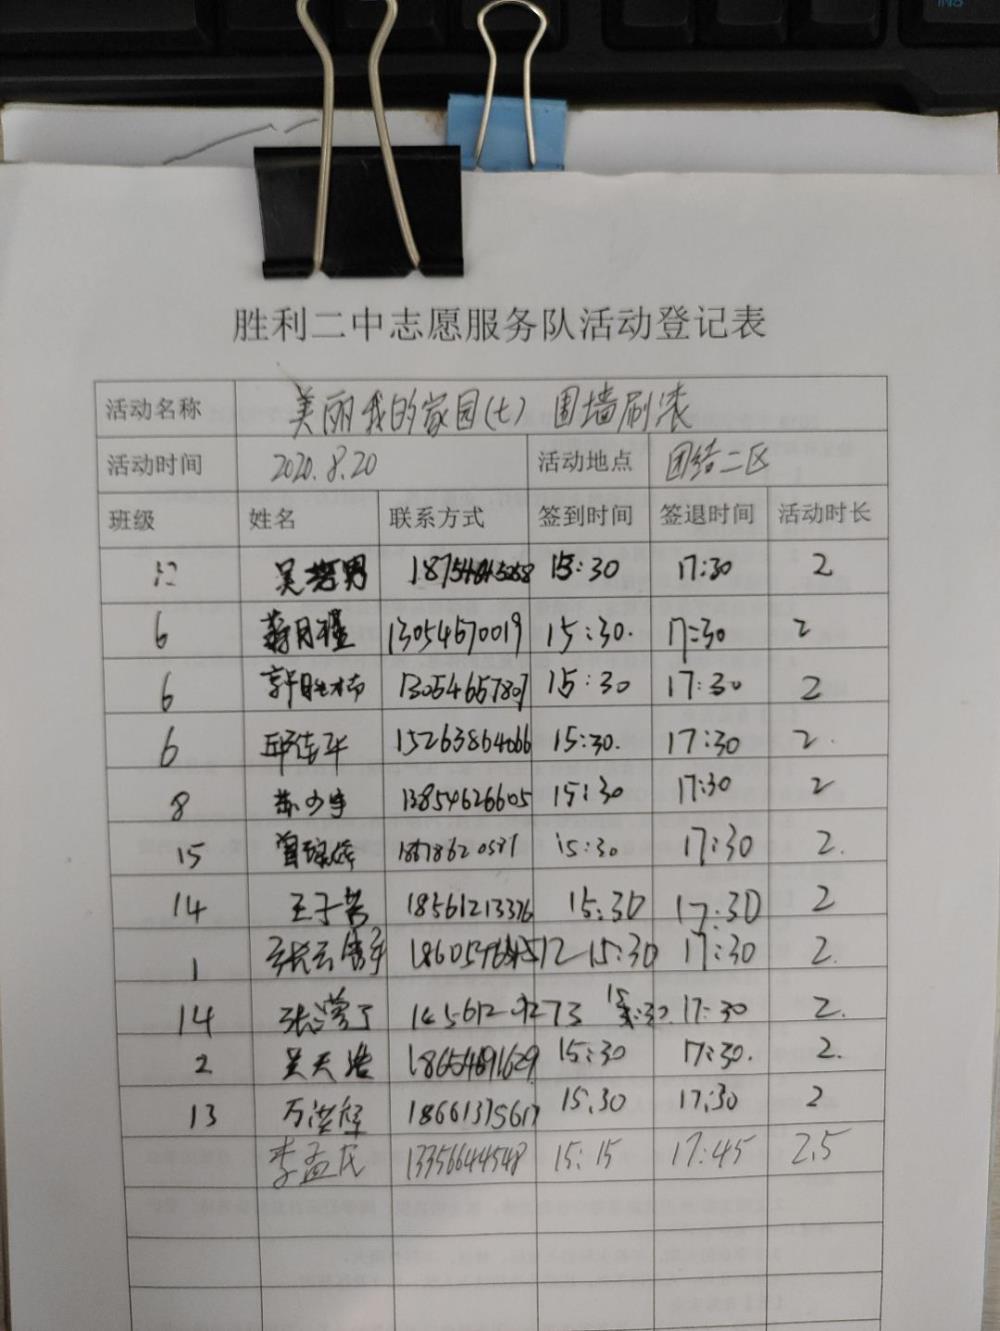 胜利二中志愿服务队活动登记表
活动名称 美丽我的家园(七) 围墙刷漆
活动时间 2020.8.20 活动地点 团结二区
班级 姓名 联系方式 签到时间 签退时间 活动时长
15:30 17:30 2
6 13054670019 15:30. 17:30 2
6 13054657807 15:30 17:30 2
6 15263864066 15:30. 17:30 2.
8 苏少宇 13854626605 15:30 17:30 2
15 15:30 17:30 2.
14 王子营 18561213376 15:30 17:30 2
1 15:30 17:30 2.
14 15:30. 17:30 2.
2 吴天浩 18654891629 15:30 17:30. 2.
13 万洪辉 18661375617 15.30 17:30 2
李孟民 13356644548 15:15 17:45 2.5